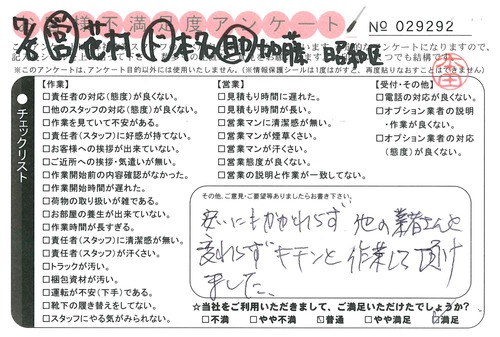 お客様不満足度アンケート
№ 029292
名 営 花村 ド 本名 助 加藤 昭和区
※このアンケートは、アンケート目的以外には使用しません。(※情報保護シールは1度はがすと、再度貼りなおすことはできません)
チェックリスト
【作業】
□責任者の対応(態度)が良くない。
□他のスタッフの対応(態度)が良くない。
□作業を見ていて不安がある。
□責任者(スタッフ)に好感が持てない。
□お客様への挨拶が出来ていない。
□ご近所への挨拶・気遣いが無い。
□作業開始前の内容確認がなかった。
□作業開始時間が遅れた。
□荷物の取り扱いが雑である。
□お部屋の養生が出来ていない。
□作業時間が長すぎる。
□責任者(スタッフ)に清潔感が無い。
□責任者(スタッフ)が汗くさい。
□トラックが汚い。
□梱包資材が汚い。
□運転が不安(下手)である。
□靴下の履き替えをしてない。
□スタッフにやる気がみられない。
【営業】
□見積もり時間に遅れた。
□見積もり時間が長い。
□営業マンに清潔感が無い。
□営業マンが煙草くさい。
□営業マンが汗くさい。
□営業態度が良くない。
□営業の説明と作業が一致してない。
【受付・その他】
□電話の対応が良くない。
□オプション業者の説明
・作業が良くない。
□オプション業者の対応
(態度)が良くない。
その他、ご意見・ご要望等ありましたらお書き下さい。
安いにもかかわらず 他の業者さんと
変わらず キチンと 作業して 頂け
ました。
☆当社をご利用いただきまして、ご満足いただけたでしょうか?
□不満 □やや不満 □普通 □やや満足 □満足